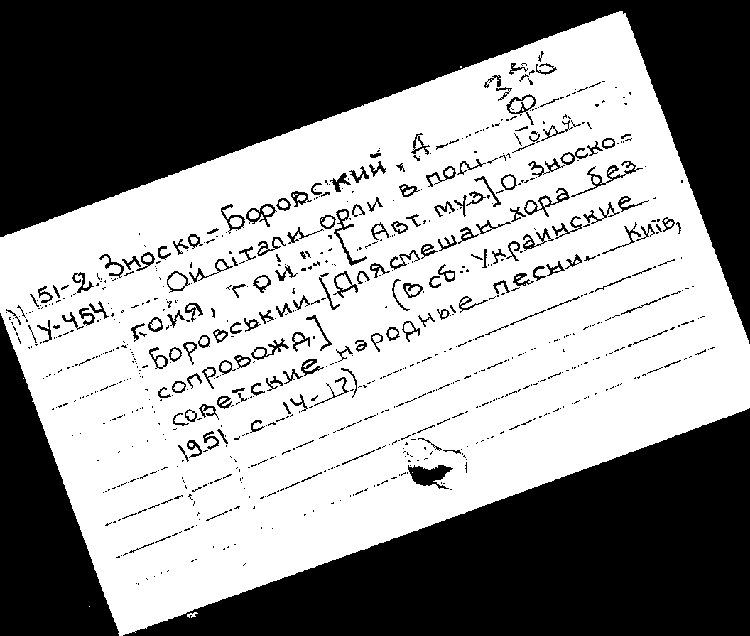 376
ф
151-2 Зноско-Боровский, А.
У-454 Ой літали орли в полі „Гойя,
гойя, гой“... [Авт. муз.] О. Зноско-
Боровський [Для смешан хора без
сопровожд.] (В сб.: Украинские
советские народные песни. Київ,
1951. с. 14-17).